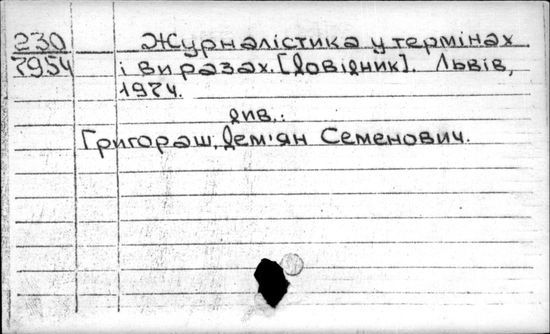 230
7954
Журналістика у термінах
і виразах. [Довідник]. Львів,
1974.
див.:
Григораш, Дем'ян Семенович.